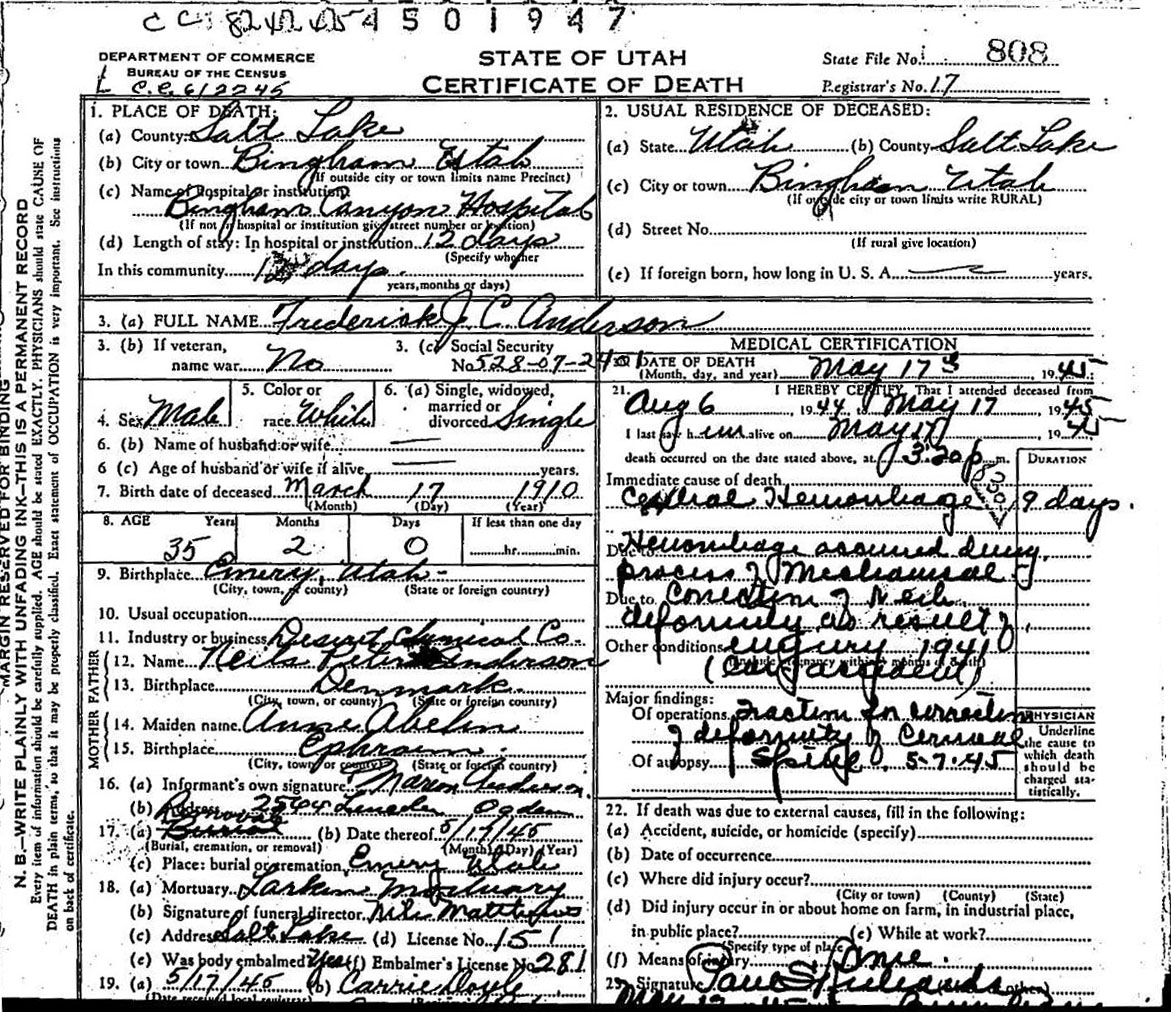 4 5 0 1 9 4 7
DEPARTMENT OF COMMERCE
BUREAU OF THE CENSUS
C.C. 612245
STATE OF UTAH
CERTIFICATE OF DEATH
State File No. 808
Registrar's No. 17
MARGIN RESERVED FOR BINDING
N. B.—WRITE PLAINLY WITH UNFADING INK—THIS IS A PERMANENT RECORD
Every item of information should be carefully supplied. AGE should be stated EXACTLY. PHYSICIANS should state CAUSE OF
DEATH in plain terms, so that it may be properly classified. Exact statement of OCCUPATION is very important. See instructions
on back of certificate.
1. PLACE OF DEATH:
(a) County Salt Lake
(b) City or town Bingham Utah
(If outside city or town limits name Precinct)
(c) Name of hospital or institution
Bingham Canyon Hospital
(If not hospital or institution give street number or location)
(d) Length of stay: In hospital or institution 12 days
(Specify whether
In this community 12 days.
years, months or days)
2. USUAL RESIDENCE OF DECEASED:
(a) State Utah (b) County Salt Lake
(c) City or town Bingham Utah
(If outside city or town limits write RURAL)
(d) Street No.
(If rural give location)
(e) If foreign born, how long in U. S. A. years.
3. (a) FULL NAME Frederick J C Anderson
3. (b) If veteran, name war No
3. (c) Social Security No 528-07-2401
4. Sex Male
5. Color or race White
6. (a) Single, widowed, married or divorced Single
6. (b) Name of husband or wife
6 (c) Age of husband or wife if alive years.
7. Birth date of deceased March 17 1910
(Month) (Day) (Year)
8. AGE Years Months Days If less than one day
35 2 0 hr. min.
9. Birthplace Emery, Utah
(City, town, or county) (State or foreign country)
10. Usual occupation
11. Industry or business Deseret Chemical Co.
FATHER
12. Name Neils Peter Anderson
13. Birthplace Denmark.
(City, town, or county) (State or foreign country)
MOTHER
14. Maiden name Anne Abelin
15. Birthplace Ephraim.
(City, town, or county) (State or foreign country)
16. (a) Informant's own signature Anderson.
(b) Address 2544 Lincoln Ogden
Removal
17. (a) Burial (b) Date thereof 5/17/45
(Burial, cremation, or removal) (Month) (Day) (Year)
(c) Place: burial or cremation Emery Utah
18. (a) Mortuary Larkin Mortuary
(b) Signature of funeral director Matthews
(c) Address Salt Lake (d) License No. 151
(e) Was body embalmed Yes (f) Embalmer's License No 281
19. (a) 5/17/45 (b) Carrie Doyle
(Date received local registrar)
MEDICAL CERTIFICATION
20. DATE OF DEATH May 17 1945
(Month, day, and year)
21. I HEREBY CERTIFY, That I attended deceased from
Aug 6 1944 to May 17 1945
I last saw him alive on May 17 1945
death occurred on the date stated above, at 3:20 p. m.
DURATION
Immediate cause of death
Hemorrhage 9 days.
Due to Hemorrhage occurred during
process of Mechanical
Due to Correction of Neck
deformity as result of
Other conditions injury 1941
(Car accident)
Major findings:
Of operations Traction for correction
of deformity of Cervical
Of autopsy Spine. 5-7-45
PHYSICIAN
Underline
the cause to
which death
should be
charged sta-
tistically.
22. If death was due to external causes, fill in the following:
(a) Accident, suicide, or homicide (specify)
(b) Date of occurrence
(c) Where did injury occur?
(City or town) (County) (State)
(d) Did injury occur in or about home on farm, in industrial place,
in public place? (e) While at work?
(Specify type of place)
(f) Means of injury
23. Signature Paul S Richards